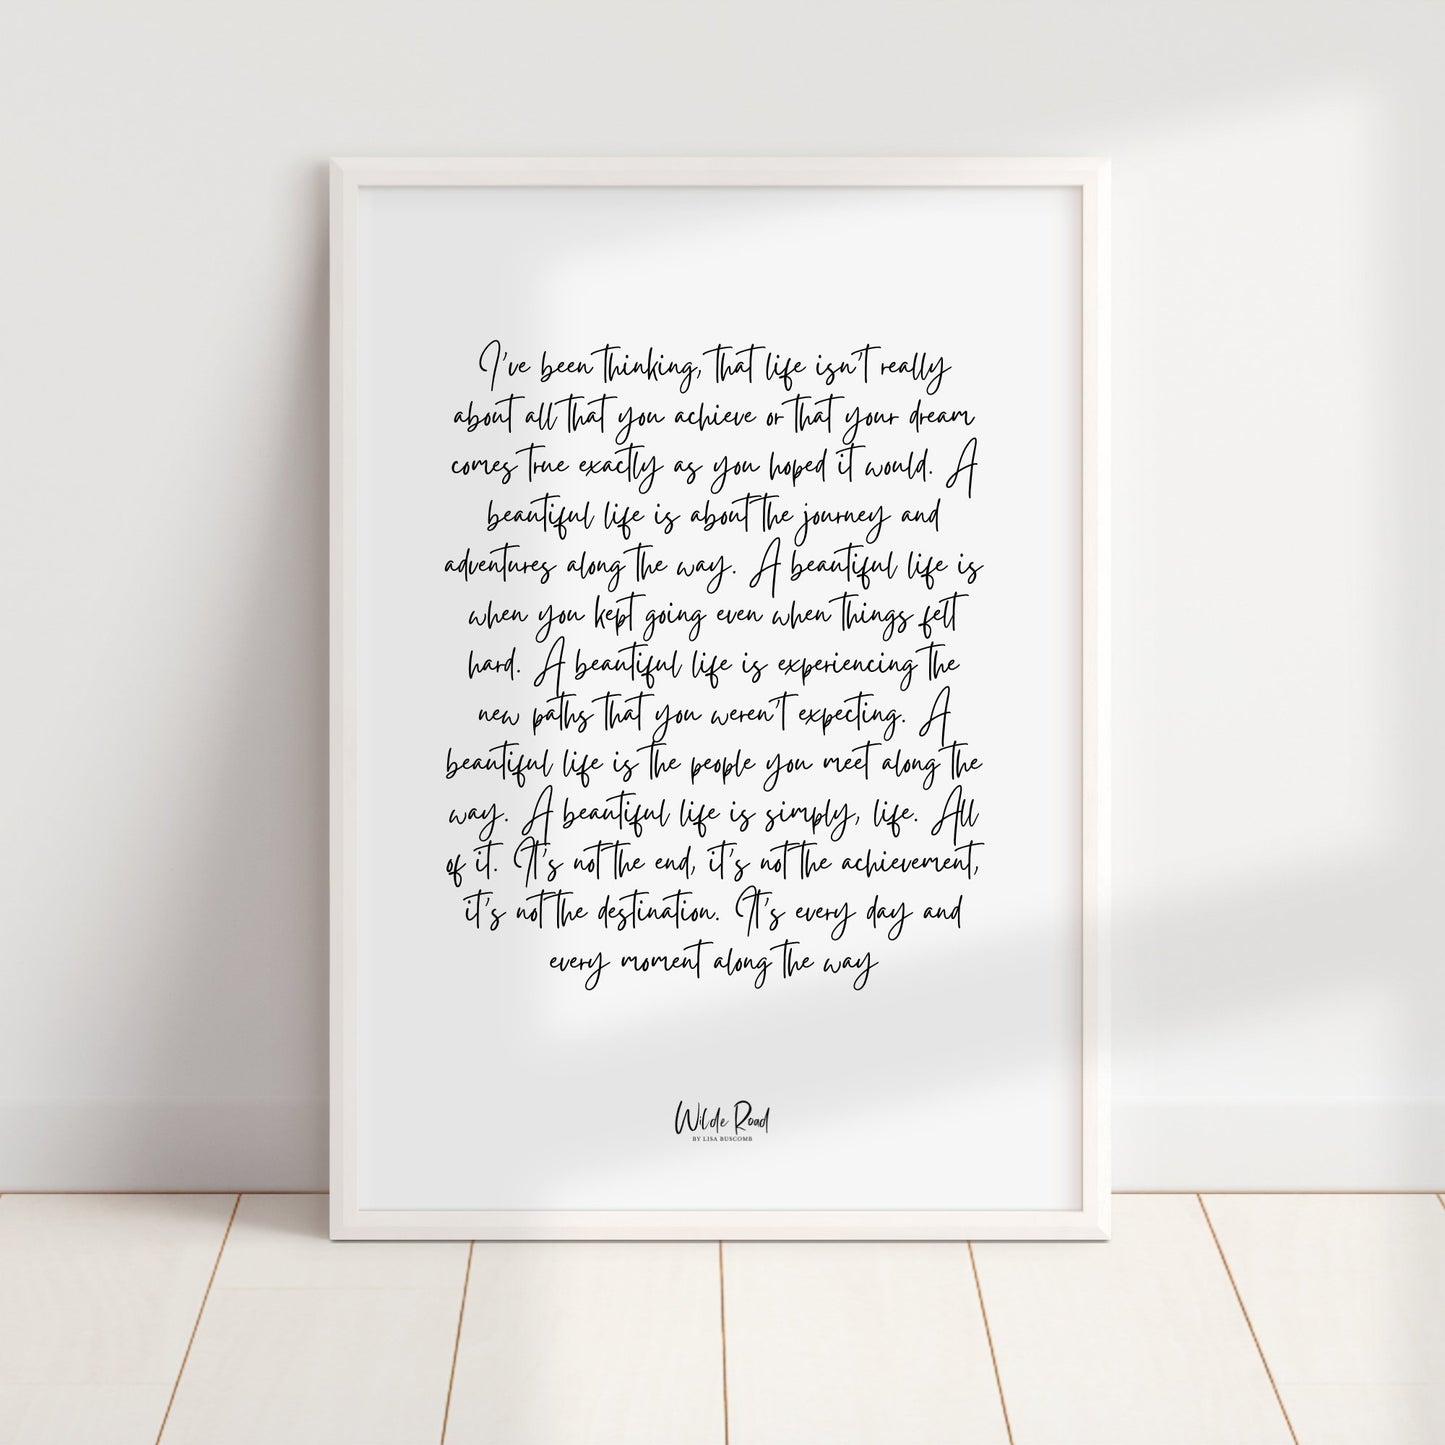 I've been thinking, that life isn't really
about all that you achieve or that your dream
comes true exactly as you hoped it would. A
beautiful life is about the journey and
adventures along the way. A beautiful life is
when you kept going even when things felt
hard. A beautiful life is experiencing the
new paths that you weren't expecting. A
beautiful life is the people you meet along the
way. A beautiful life is simply, life. All
of it. It's not the end, it's not the achievement,
it's not the destination. It's every day and
every moment along the way
Wilde Road
BY LISA BUSCOMB